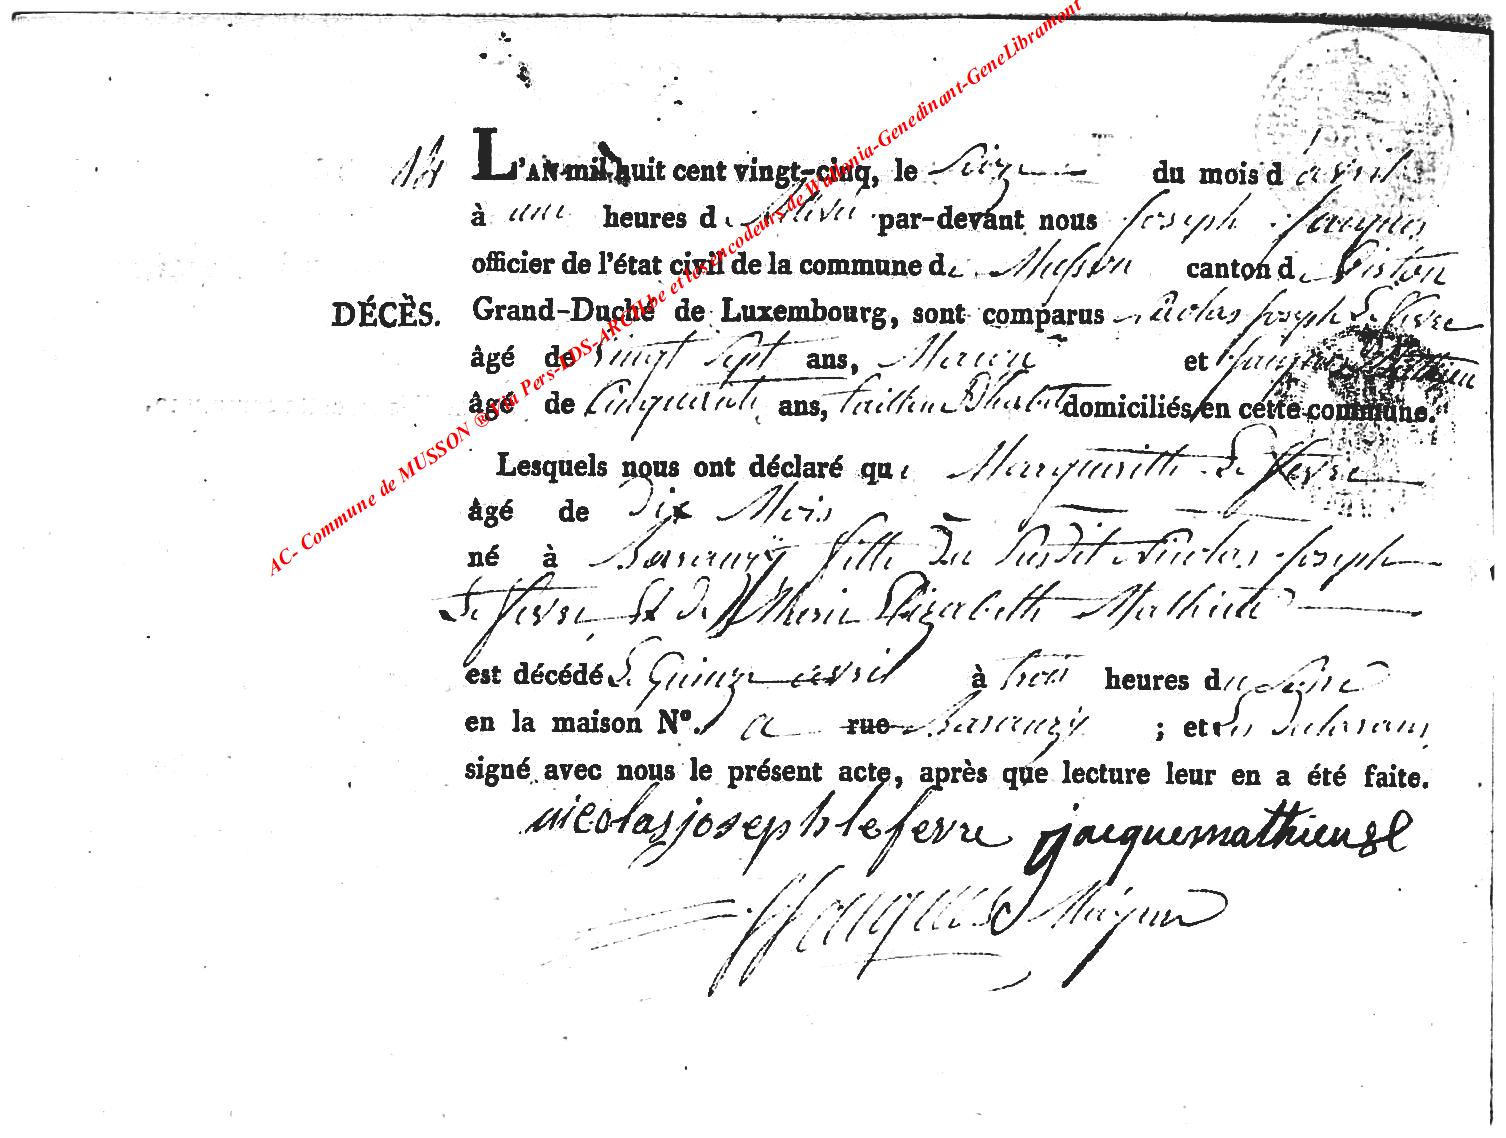 14 L'AN mil huit cent vingt-cinq, le Seize du mois d avril
à une heures de relevé par-devant nous Joseph Jacques
officier de l'état civil de la commune de Musson canton de Virton
DÉCÈS. Grand-Duché de Luxembourg, sont comparus Nicolas Joseph Le fevre
âgé de vingt Sept ans, Maçon et Jacques Mathieu
âgé de Cinquante ans, tailleur D'habit domiciliés en cette commune.
Lesquels nous ont déclaré que Margueritte Le fevre
âgé de Dix Mois
né à Baranzÿ fille Du Susdit Nicolas Joseph
Le fevre Et de Marie Elizabeth Mathieu
est décédé Le Quinze avril à trois heures du Soire
en la maison N°. a rue Baranzÿ ; et Les Declarans
signé avec nous le présent acte, après que lecture leur en a été faite.
nicolas joseph lefevre jacque mathieu
JJacques Mayeur
AC- Commune de MUSSON ® Via Pers-EDS-ARCH.be et les encodeurs de Wallonia-Genedinant-GeneLibramont